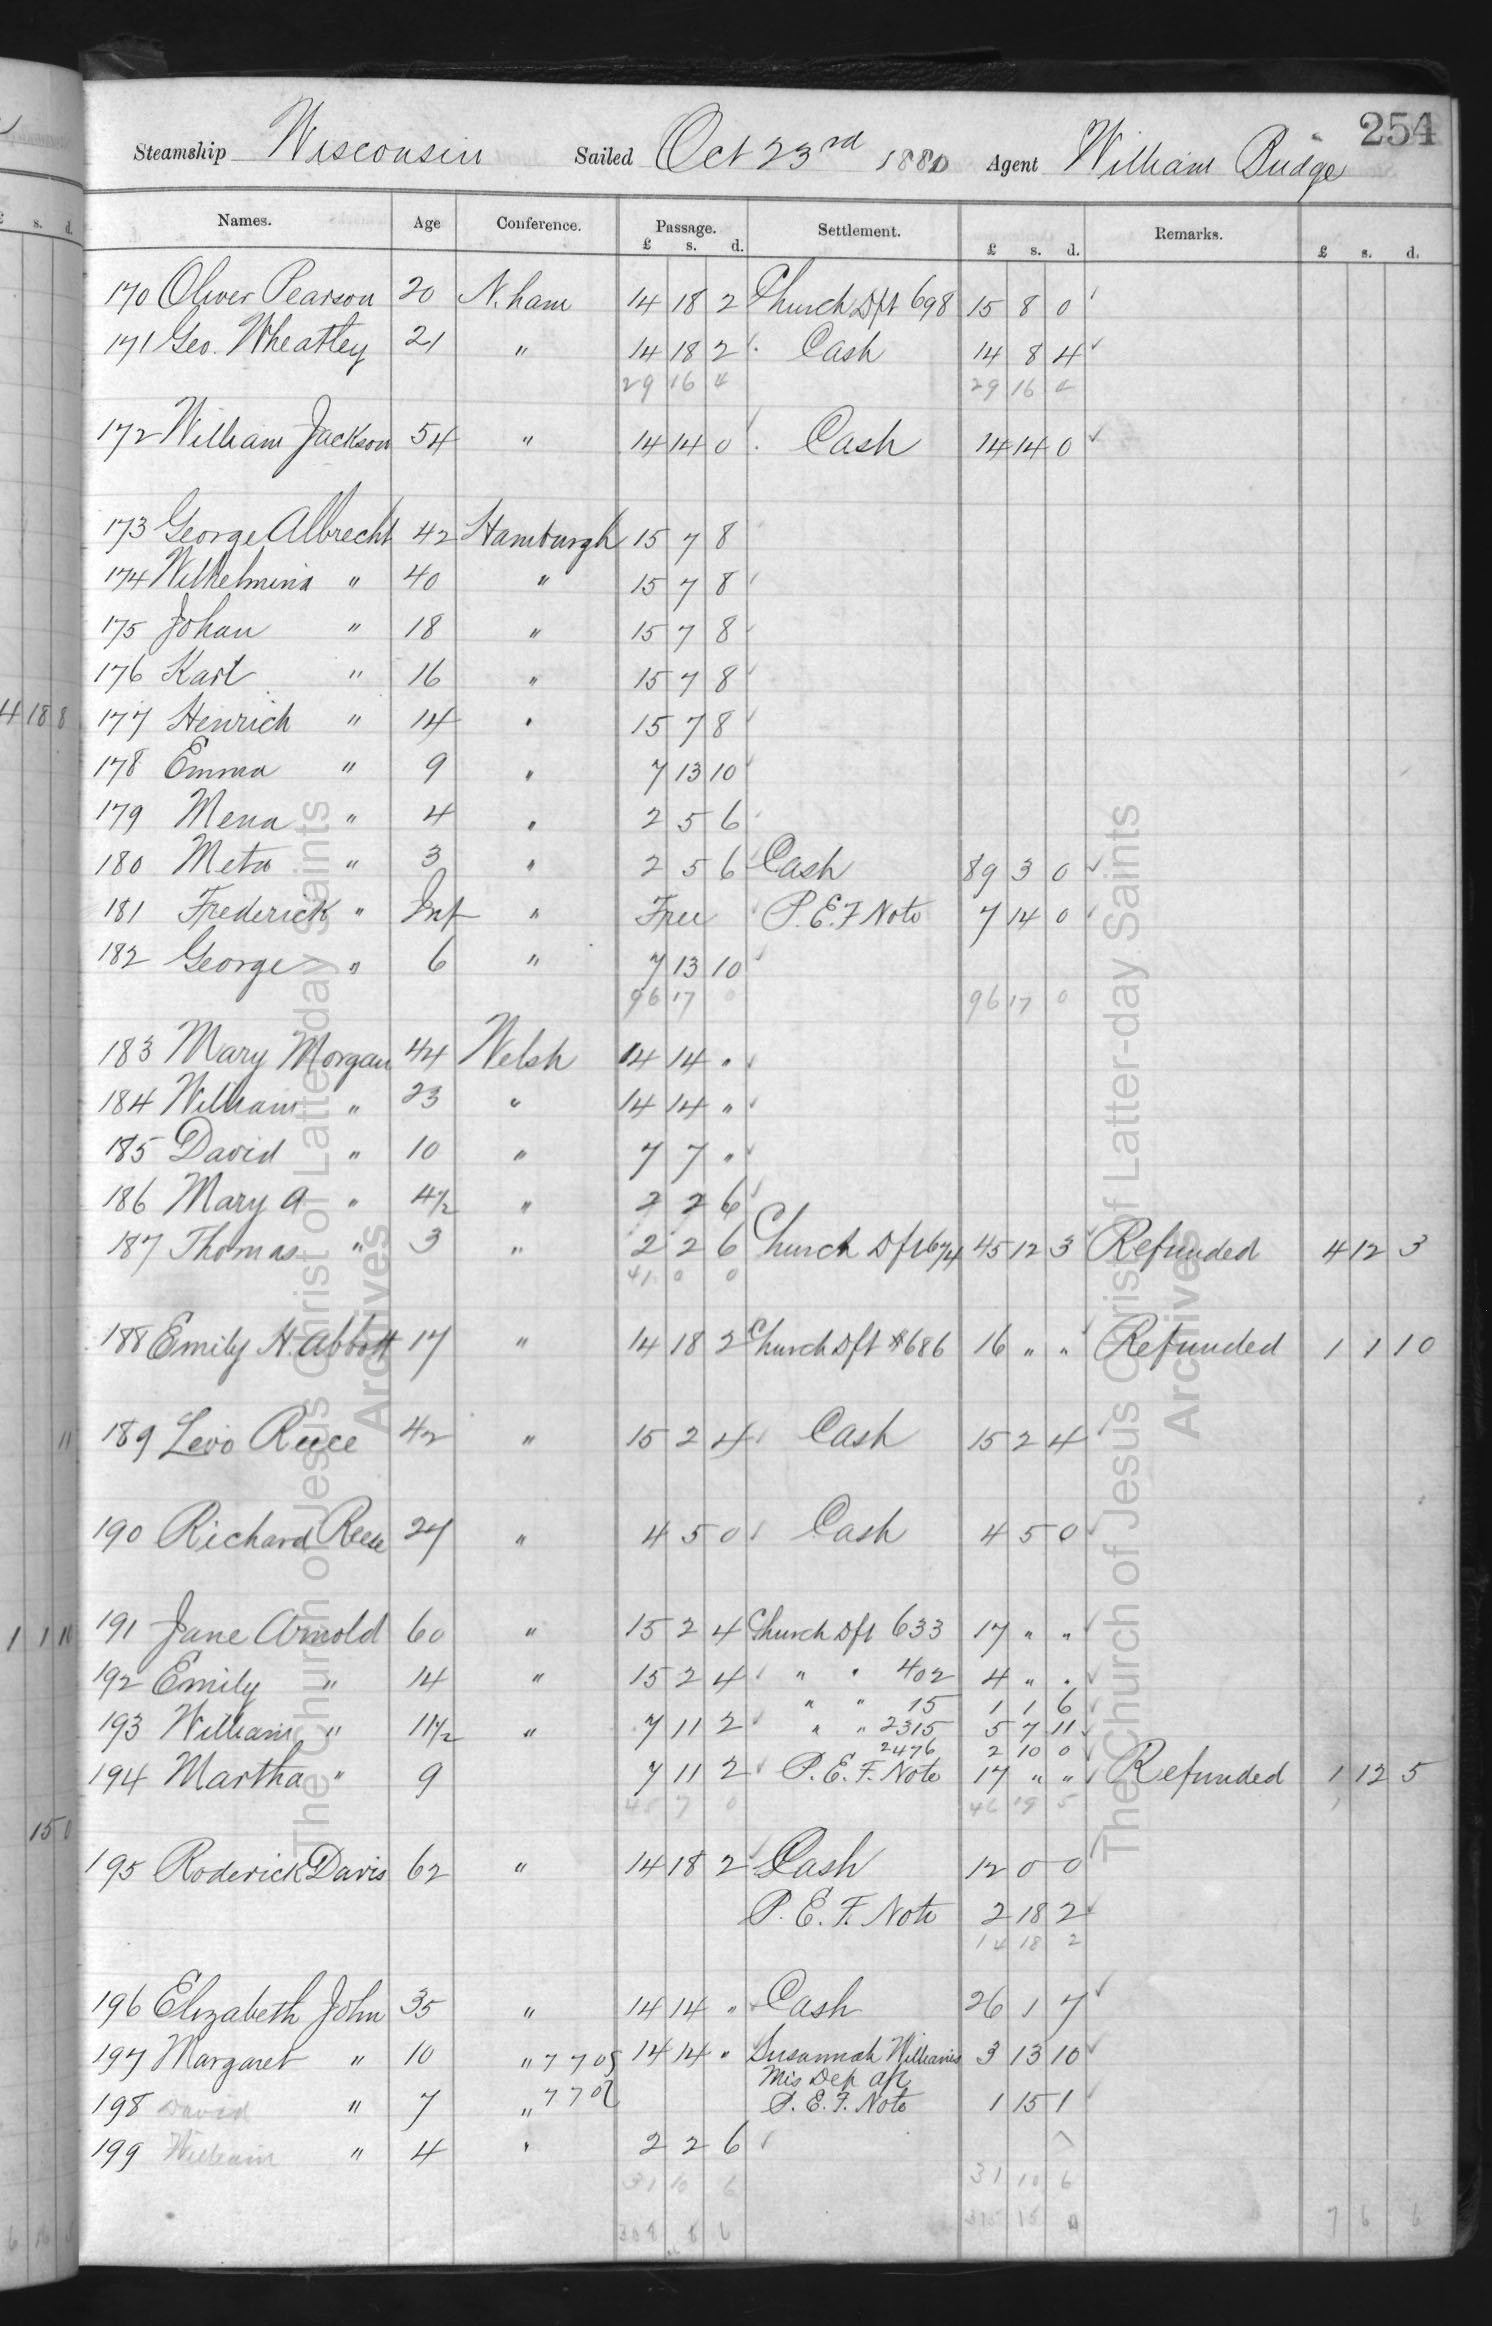 254
Steamship Wisconsin Sailed Oct 23rd 1880 Agent William Budge
Names. Age Conference. Passage. £ s. d. Settlement. £ s. d. Remarks. £ s. d.
170 Oliver Pearson 20 N.ham 14 18 2 Church Dft 698 15 8 0
171 Geo. Wheatley 21 " 14 18 2 Cash 14 8 4
29 16 4 29 16 4
172 William Jackson 54 " 14 14 0 Cash 14 14 0
173 George Albrecht 42 Hamburgh 15 7 8
174 Wilhelmina " 40 " 15 7 8
175 Johan " 18 " 15 7 8
176 Karl " 16 " 15 7 8
177 Henrich " 14 " 15 7 8
178 Emma " 9 " 7 13 10
179 Mena " 4 " 2 5 6
180 Meta " 3 " 2 5 6 Cash 89 3 0
181 Frederick " Inf " Free P.E.F Note 7 14 0
182 George " 6 " 7 13 10
96 17 0 96 17 0
183 Mary Morgan 44 Welsh 14 14 "
184 William " 23 " 14 14 "
185 David " 10 " 7 7 "
186 Mary A " 4½ " 2 2 6
187 Thomas " 3 " 2 2 6 Church Dft 674 45 12 3 Refunded 4 12 3
41 0 0
188 Emily H. Abbott 17 " 14 18 2 Church Dft 686 16 " " Refunded 1 1 10
189 Levo Reece 42 " 15 2 4 Cash 15 2 4
190 Richard Reese 24 " 4 5 0 Cash 4 5 0
191 Jane Arnold 60 " 15 2 4 Church Dft 633 17 " "
192 Emily " 14 " 15 2 4 " " 402 4 " "
" " 15 1 1 6
193 William " 11½ " 7 11 2 " " 2315 5 7 11
2476 2 10 0
194 Martha " 9 7 11 2 P.E.F. Note 17 " " Refunded 1 12 5
45 7 0 46 19 5
195 Roderick Davis 62 " 14 18 2 Cash 12 0 0
P.E.F. Note 2 18 2
14 18 2
196 Elizabeth John 35 " 14 14 " Cash 26 1 7
197 Margaret " 10 " 7 7 0 14 14 " Susannah Williams 3 13 10
Mis Dep a/c
198 David " 7 " 7 7 0 P.E.F. Note 1 15 1
199 William " 4 " 2 2 6
31 10 6 31 10 6
308 8 6 315 15 0 7 6 6
The Church of Jesus Christ of Latter-day Saints
Archives
The Church of Jesus Christ of Latter-day Saints
Archives